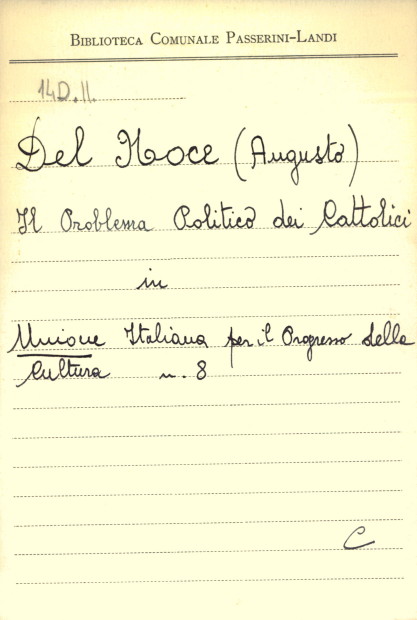 BIBLIOTECA COMUNALE PASSERINI-LANDI
14D.II.
Del Noce (Augusto)
Il Problema Politico dei Cattolici
in
Unione Italiana per il Progresso della
Cultura n. 8
C